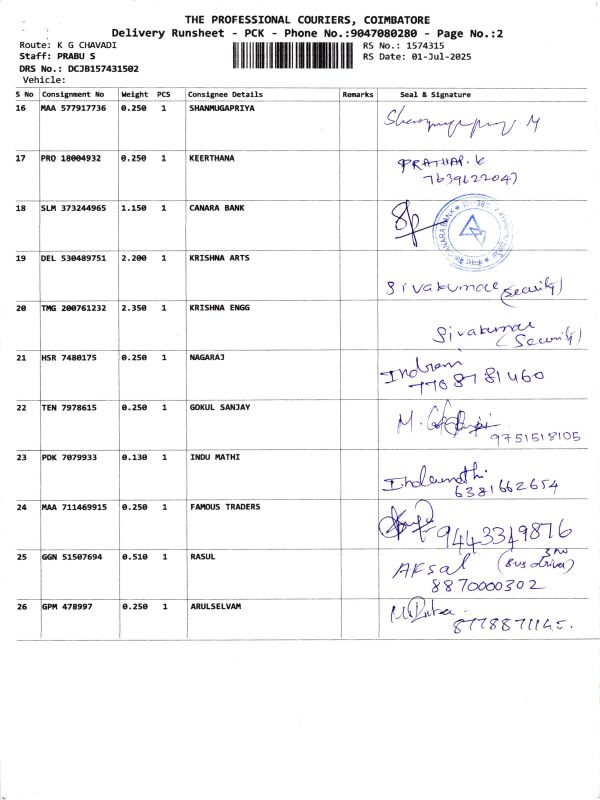 THE PROFESSIONAL COURIERS, COIMBATORE
Delivery Runsheet - PCK - Phone No.:9047080280 - Page No.:2
Route: K G CHAVADI
RS No.: 1574315
Staff: PRABU S
RS Date: 01-Jul-2025
DRS No.: DCJB157431502
Vehicle:
S No Consignment No Weight PCS Consignee Details Remarks Seal & Signature
16 MAA 577917736 0.250 1 SHANMUGAPRIYA
17 PRO 18004932 0.250 1 KEERTHANA PRATHAP. K
7639622047
18 SLM 373244965 1.150 1 CANARA BANK CANARA BANK
19 DEL 530489751 2.200 1 KRISHNA ARTS Sivakumar (Security)
20 TMG 200761232 2.350 1 KRISHNA ENGG Sivakumar
(Security)
21 HSR 7480175 0.250 1 NAGARAJ Indram
7708781460
22 TEN 7978615 0.250 1 GOKUL SANJAY M.
9751518105
23 PDK 7079933 0.130 1 INDU MATHI Indumathi
6381662654
24 MAA 711469915 0.250 1 FAMOUS TRADERS 9443349876
25 GGN 51507694 0.510 1 RASUL AFsal (Bus driver)
8870000302
26 GPM 478997 0.250 1 ARULSELVAM
8778871145.